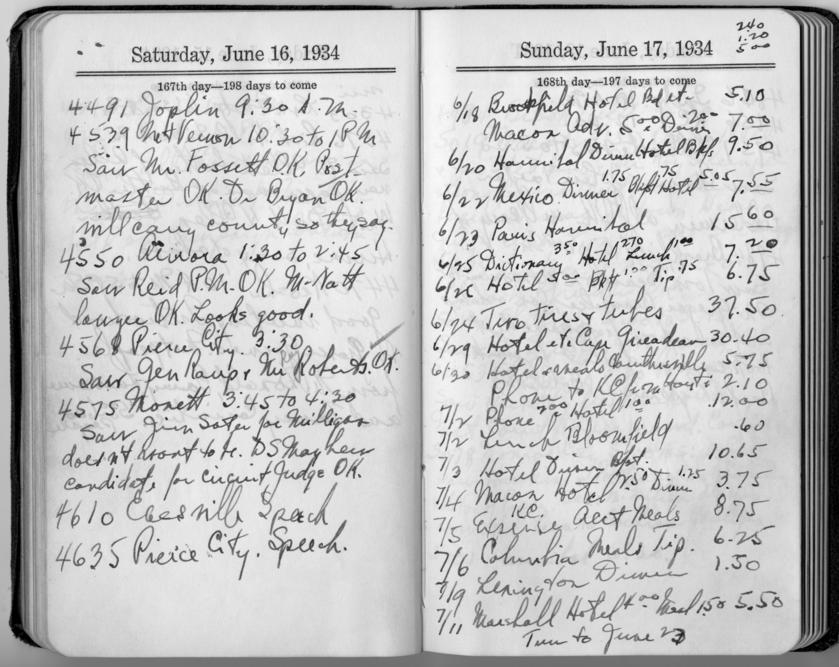 Saturday, June 16, 1934
167th day—198 days to come
4491 Joplin 9:30 A.M.
4539 Mt Vernon 10:30 to 1 P.M
Saw Mr. Fossett OK. Post
master OK. Dr Bryan OK.
will carry county so they say.
4550 Aurora 1:30 to 2:45
Saw Reid P.M. OK. McNatt
lawyer OK. Looks good.
4568 Pierce City 3:30
Saw Gen Raup & Mr Roberts. OK.
4575 Monett 3:45 to 4:30
Saw Jim Sater for Milligan
doesn't want to be. DS Mayhew
candidate for circuit Judge OK.
4610 Speech
4635 Pierce City. Speech.
240
1.20
5 00
Sunday, June 17, 1934
168th day—197 days to come
6/18 Brookfield Hotel Bd etc. 5.10
Macon Adv. 5 00 Dinner 2 00 7.00
6/20 Hannibal Dinner Hotel Bkfs 9.50
6/22 Mexico Dinner 1.75 Bkft .75 Hotel 5.05 7.55
6/23 Paris Hannibal 15 60
6/25 Dictionary 3 50 Hotel 2 70 Lunch 1 00 7.20
6/26 Hotel 5 00 Bkft 1 00 Tip .75 6.75
6/24 Two tires & tubes 37.50
6/29 Hotel etc Cape Girardeau 30.40
6/30 Hotel & meals Caruthersville 5.75
Phone to KC 2.10
7/2 Phone 2 00 Hotel 1 00 12.00
7/2 Lunch Bloomfield .60
7/3 Hotel Dinner Bkft. 10.65
7/4 Macon Hotel 2.50 Dinner 1.25 3.75
7/5 KC. Expense Acct Meals 8.75
7/6 Columbia Meals Tip. 6.25
7/9 Lexington Dinner 1.50
7/11 Marshall Hotel 4 00 Meal 1.50 5.50
Turn to June 23